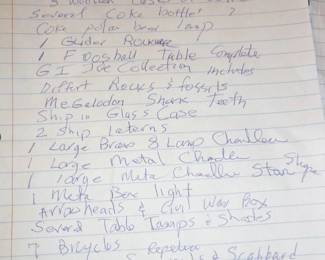 Several Coke bottles 2
Coke polar bear lamp
1 Glider
1 Foosball Table Complete
G I Joe Collection includes
Differt Rocks & fossils
Megelodon Shark Teeth
Ship in Glass Case
2 Ship Laterns
1 Large Brass 8 Lamp
1 Large Metal
1 large Meta Star
1 Meta Box light
Arrowheads & Civil War Box
Several Table Lamps & Shades
7 Bicycles
& Scabbard